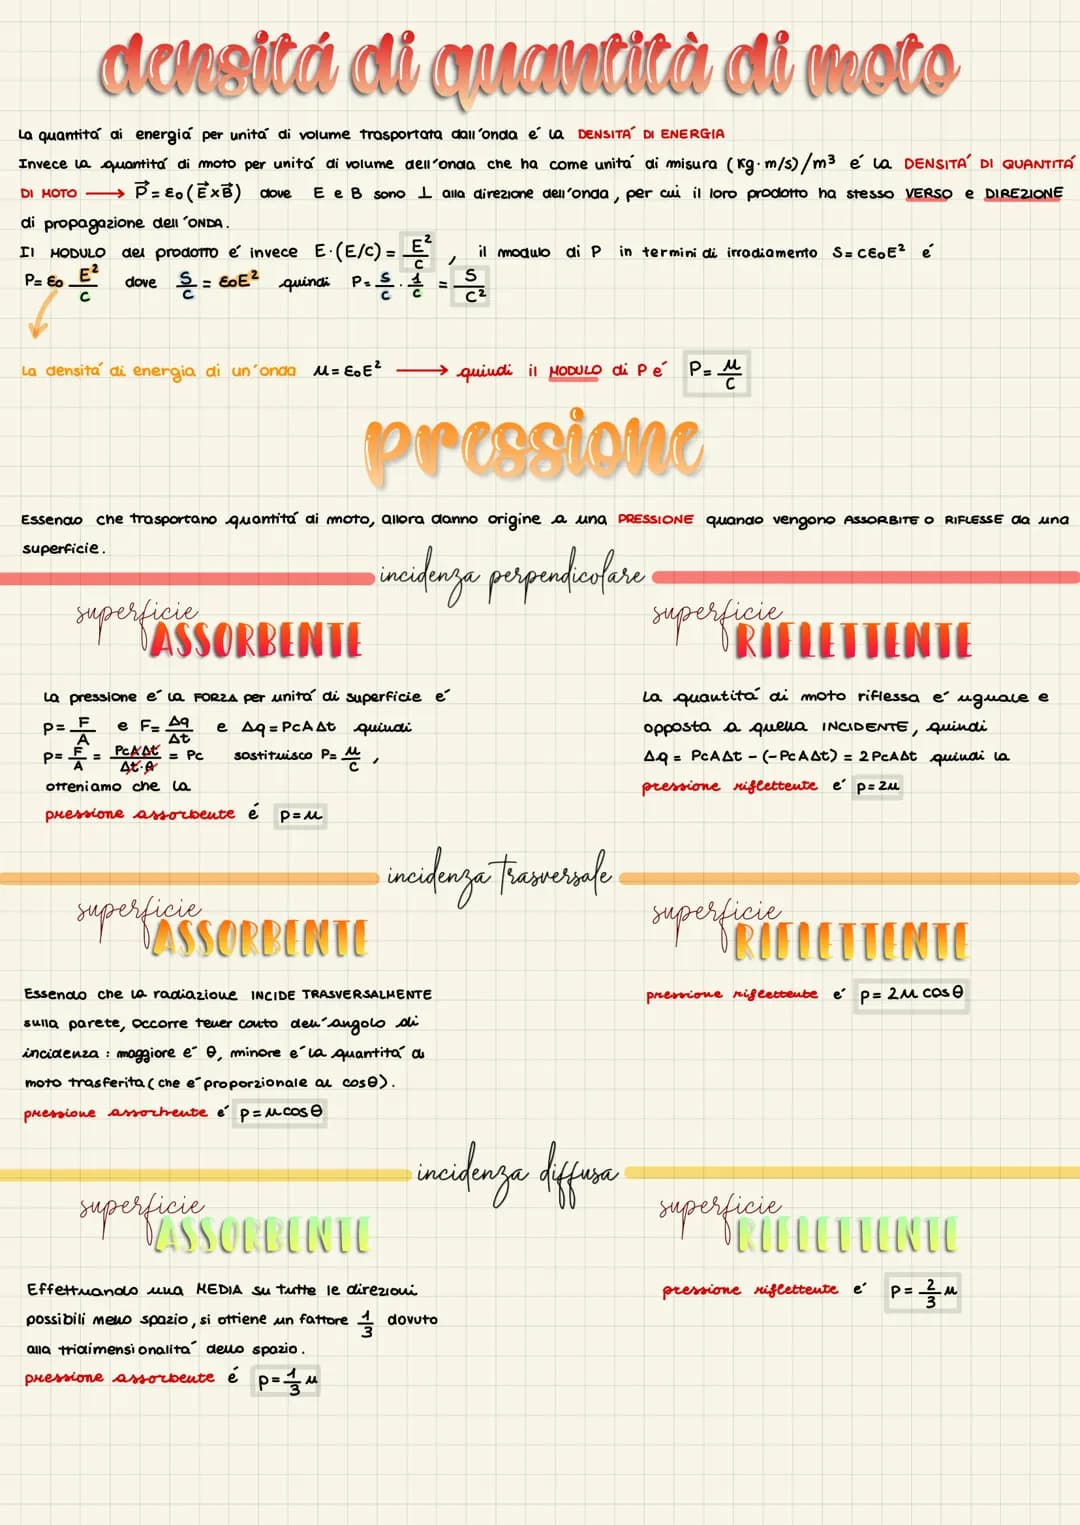 densitá di quantità di moto
La quantitá di energiá per unitá di volume trasportata dall'onda é la DENSITÁ DI ENERGIA
Invece la quantitá di moto per unitá di volume dell'onda che ha come unitá di misura (Kg·m/s)/m³ é la DENSITÁ DI QUANTITÁ
DI MOTO ⟶ P⃗ = ε₀(E⃗×B⃗) dove E e B sono ⊥ alla direzione dell'onda, per cui il loro prodotto ha stesso VERSO e DIREZIONE
di propagazione dell'ONDA.
Il MODULO del prodotto é invece E·(E/c) = E²/c, il modulo di P in termini di irradiamento S=cε₀E² é
P= ε₀ E²/c dove S/c = ε₀E² quindi P= S/c · 1/c = S/c²
La densitá di energia di un'onda μ=ε₀E² ⟶ quindi il MODULO di P é P= μ/c
pressione
Essendo che trasportano quantitá di moto, allora danno origine a una PRESSIONE quando vengono ASSORBITE O RIFLESSE da una
superficie.
incidenza perpendicolare
superficie
ASSORBENTE
La pressione é la FORZA per unitá di superficie é
p= F/A e F= Δq/Δt e Δq=PcAΔt quindi
p= F/A = PcAΔt/Δt·A = Pc sostituisco P= μ/c,
otteniamo che la
pressione assorbente é p=μ
superficie
RIFLETTENTE
La quantitá di moto riflessa é uguale e
opposta a quella INCIDENTE, quindi
Δq = PcAΔt - (-PcAΔt) = 2PcAΔt quindi la
pressione riflettente é p=2μ
incidenza trasversale
superficie
ASSORBENTE
Essendo che la radiazione INCIDE TRASVERSALMENTE
sulla parete, occorre tener conto dell'angolo di
incidenza : maggiore é θ, minore é la quantitá di
moto trasferita (che é proporzionale al cosθ).
pressione assorbente é p=μcosθ
superficie
RIFLETTENTE
pressione riflettente é p= 2μ cosθ
incidenza diffusa
superficie
ASSORBENTE
Effettuando una MEDIA su tutte le direzioni
possibili nello spazio, si ottiene un fattore 1/3 dovuto
alla tridimensionalitá dello spazio.
pressione assorbente é p= 1/3 μ
superficie
RIFLETTENTE
pressione riflettente é p= 2/3 μ